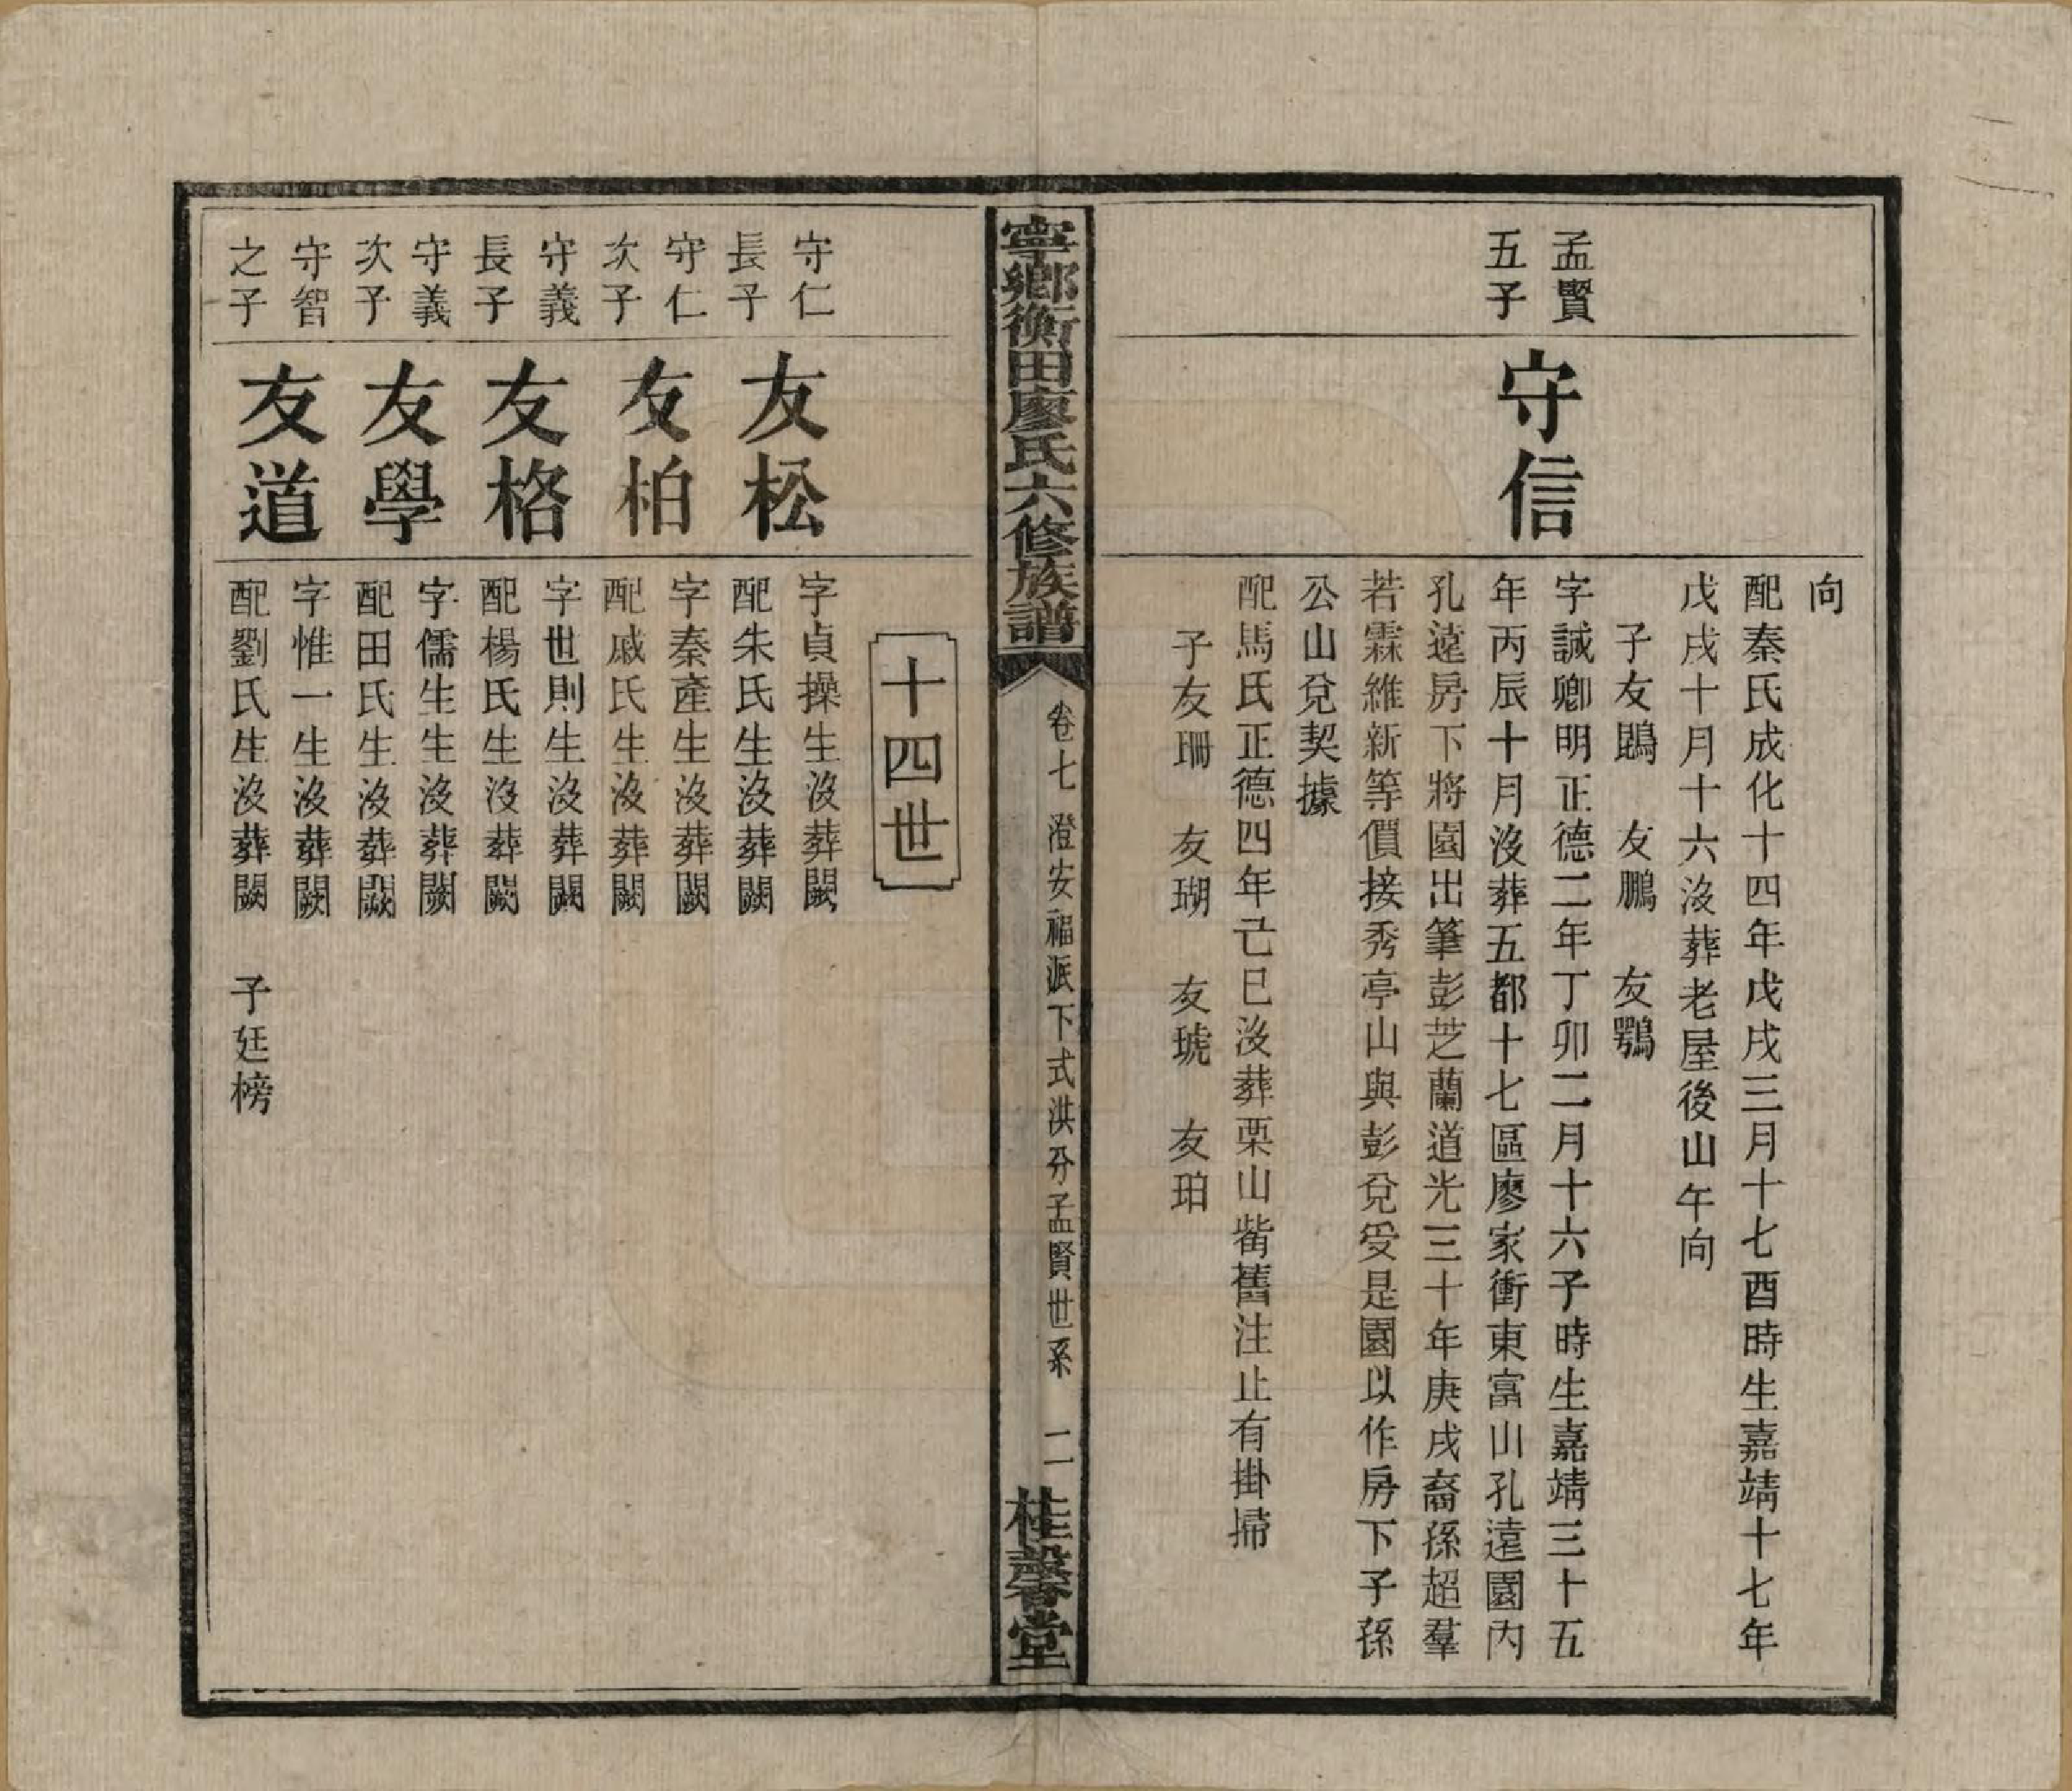 向
配秦氏成化十四年戊戌三月十七酉時生嘉靖十七年
戊戌十月十六沒葬老屋後山午向
子友鵾　友鵬　友鶚
孟賢
五子
守信
字誠卿明正德二年丁卯二月十六子時生嘉靖三十五
年丙辰十月沒葬五都十七區廖家衝東富山孔遠園內
孔遠房下將園出筆彭芝蘭道光三十年庚戌裔孫超羣
若霖維新等價接秀亭山與彭兌受是園以作房下子孫
公山兌契據
配馬氏正德四年己巳沒葬栗山觜舊注止有掛掃
子友珊　友瑚　友琥　友珀
寧鄉衡田廖氏六修族譜
卷七　澄安福派下式淇分孟賢世系　二
桂馨堂
十四世
守仁
長子
友松
字貞操生沒葬闕
配朱氏生沒葬闕
守仁
次子
友柏
字秦產生沒葬闕
配戚氏生沒葬闕
守義
長子
友格
字世則生沒葬闕
配楊氏生沒葬闕
守義
次子
友學
字儒生生沒葬闕
配田氏生沒葬闕
守智
之子
友道
字惟一生沒葬闕
配劉氏生沒葬闕　子廷榜